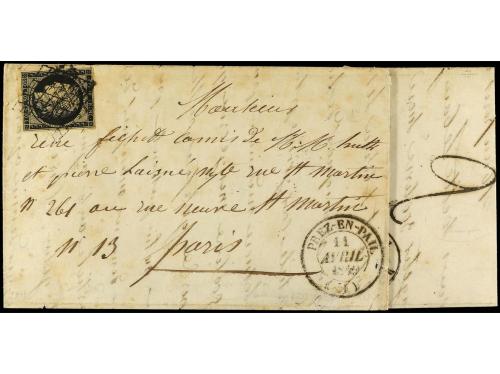 Monsieur
rené fichett comis de M.M. hutt
et pierre Laisné, rue St Martin
n 261 ou rue neuve St Martin
n 13 Paris
PREZ-EN-PAIL
11
AVRIL
1849